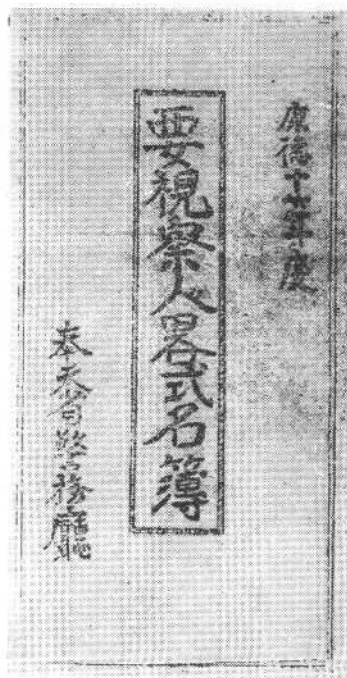 康德十年度
要視察人畧式名簿
奉天省警務廳